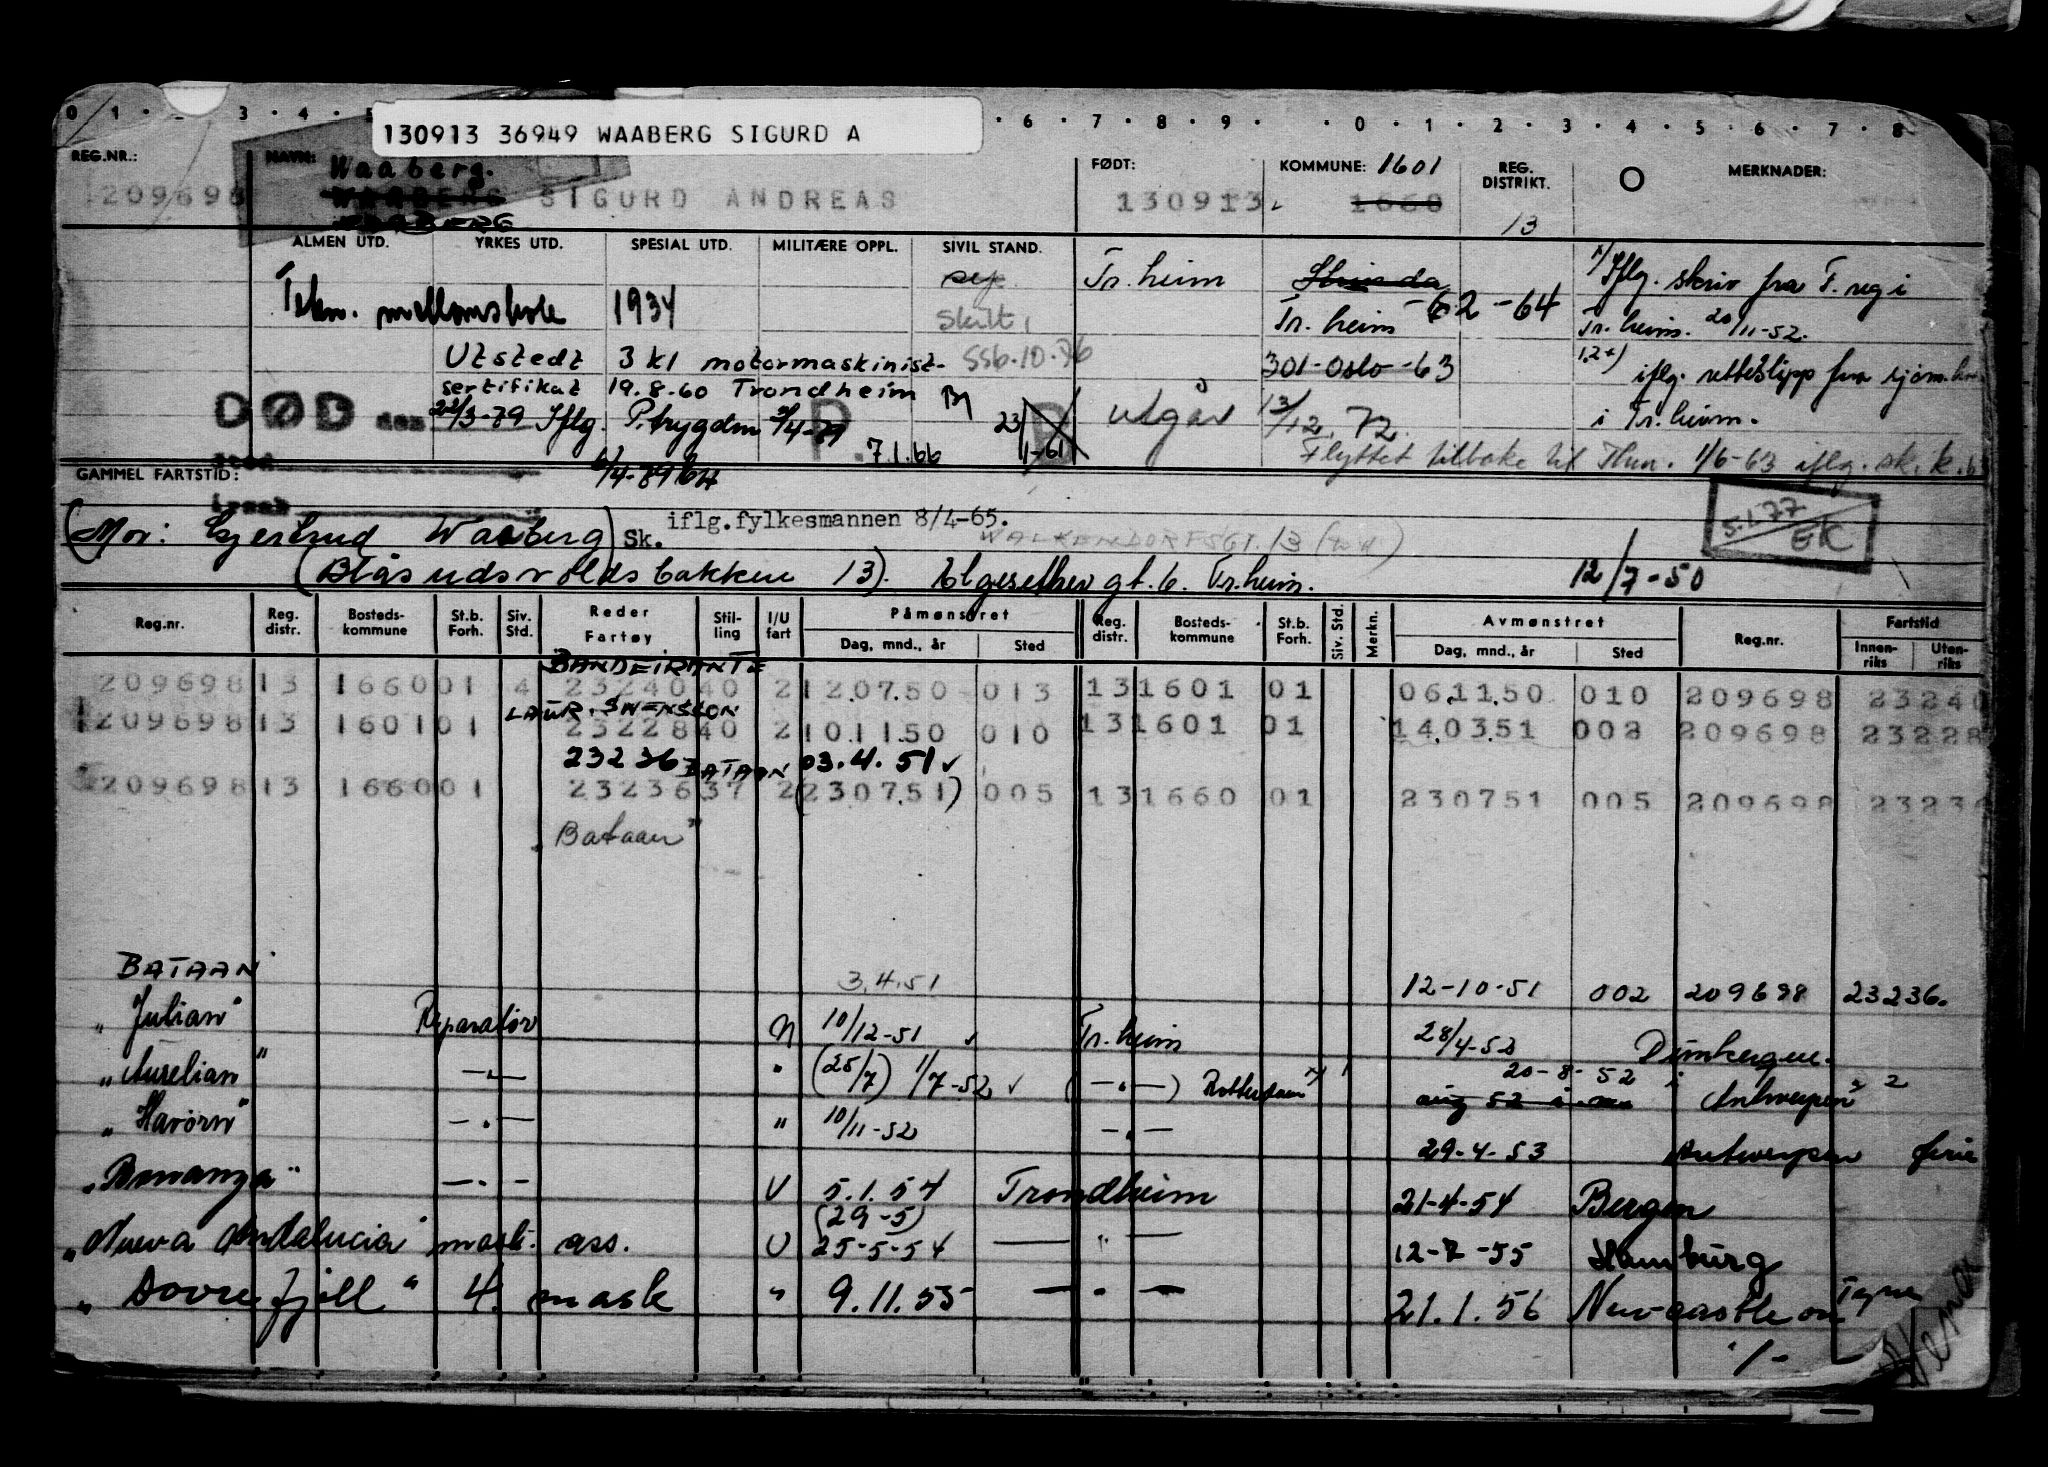 0 1 . 3 . 4 . 5 . 6 . 7 . 8 . 9 . . 0 . 1 . 2 . 3 . 4 . 5 . 6 . 7 . 8
130913 36949 WAABERG SIGURD A
REG.NR.: NAVN: Waaberg. FØDT: KOMMUNE: 1601 REG. DISTRIKT. O MERKNADER:
209698 SIGURD ANDREAS 130913 1660 13
ALMEN UTD. YRKES UTD. SPESIAL UTD. MILITÆRE OPPL. SIVIL STAND.
sep. Tr.heim Strinda x) Iflg. skriv fra T. reg i
Tekn. mellomskole 1934 Skilt, Tr. heim -62-64 Tr.heim. 20/11-52.
Utstedt 3 kl motormaskinist- SSB.10.76 301-Oslo-63 1,2+) iflg. retteslipp fra sjøm.
sertifikat 19.8.60 Trondheim i Tr.heim.
DØD den 22/3-79 Iflg. P.trygden 3/4-79 P. 7.1.66 23/1-61 utgår 13/12.72.
Flyttet tilbake til Thm. 1/6-63 iflg. sk. k.
GAMMEL FARTSTID: 6/4-89
(Mor: Gjertrud Waaberg) Sk. iflg.fylkesmannen 8/4-65.
WALKENDORFSGT. 13
5.1.77
EK
(Blåsudsvoldsbakken 13). Elgesether gt. 6. Tr.heim. 12/7-50
Reg.nr. Reg. distr. Bosteds- kommune St.b. Forh. Siv. Std. Reder Fartøy Stil- ling I/U fart Påmønstret Dag, mnd., år Sted Reg. distr. Bosteds- kommune St.b. Forh. Siv. Std. Merkn. Avmønstret Dag, mnd., år Sted Reg.nr. Fartstid Innen- riks Uten- riks
BANDEIRANTE
209698 13 1660 01 4 23240 40 2 120750 013 13 1601 01 061150 010 209698 23240
LAUR. SWENSSON
209698 13 1601 01 23228 40 2 101150 010 13 1601 01 140351 002 209698 23228
23236 BATAAN 03.4.51
209698 13 1660 01 23236 37 2 (230751) 005 13 1660 01 230751 005 209698 23236
"Bataan"
BATAAN 3.4.51 12-10-51 002 209698 23236.
"Julian" Reparatør N 10/12-51 Tr.heim 28/4-52 Dünkerque.
"Aurelian" -"- " (25/7) 1/7-52 (-"-) Rotterdam 20-8-52 i Antwerpen
aug 52
"Havørn" -"- " 10/11-52 -"- 29-4-53 Antwerpen ferie
"Bonanza" -"- U 5.1.54 Trondheim 21-4-54 Bergen
(29-5)
"Nueva Andalucia" mask. ass. U 25-5-54 -"- 12-7-55 Hamburg
"Dovrefjell" 4. mask " 9.11.55 -"- 21.1.56 Newcastle on Tyne